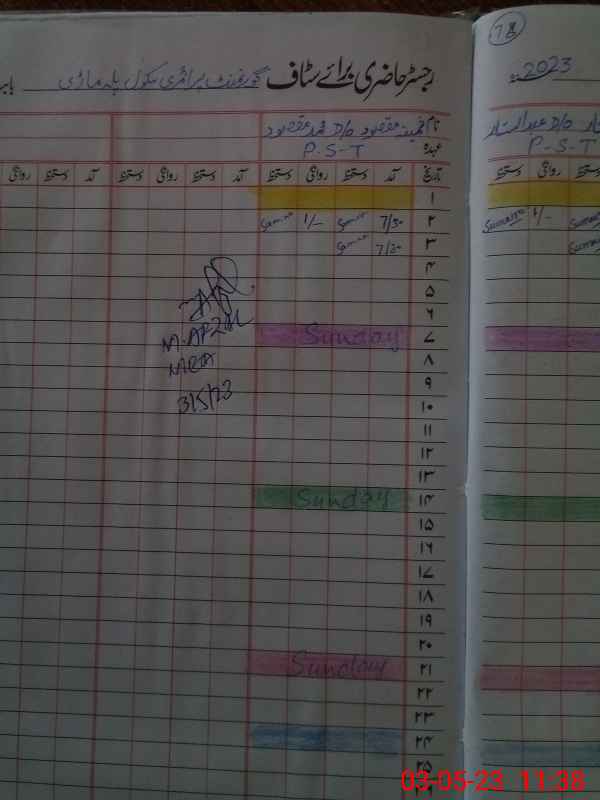 78
رجسٹر حاضری برائے سٹاف گورنمنٹ پرائمری سکول پلہ ماڑی
2023
نام ثمینہ مقصود D/o محمد مقصود
عہدہ P-S-T
عبدالستار D/o
P-S-T
تاریخ آمد دستخط روانگی دستخط آمد دستخط روانگی دستخط آمد دستخط روانگی
روانگی دستخط
۱
۲ 7/30 1/-
۳ 7/30
۴
۵
۶
۷ Sunday
۸
۹
۱۰
۱۱
۱۲
۱۳
۱۴ Sunday
۱۵
۱۶
۱۷
۱۸
۱۹
۲۰
۲۱ Sunday
۲۲
۲۳
۲۴
۲۵
M. AFZAL
MEA
3/5/23
03-05-23 11:38